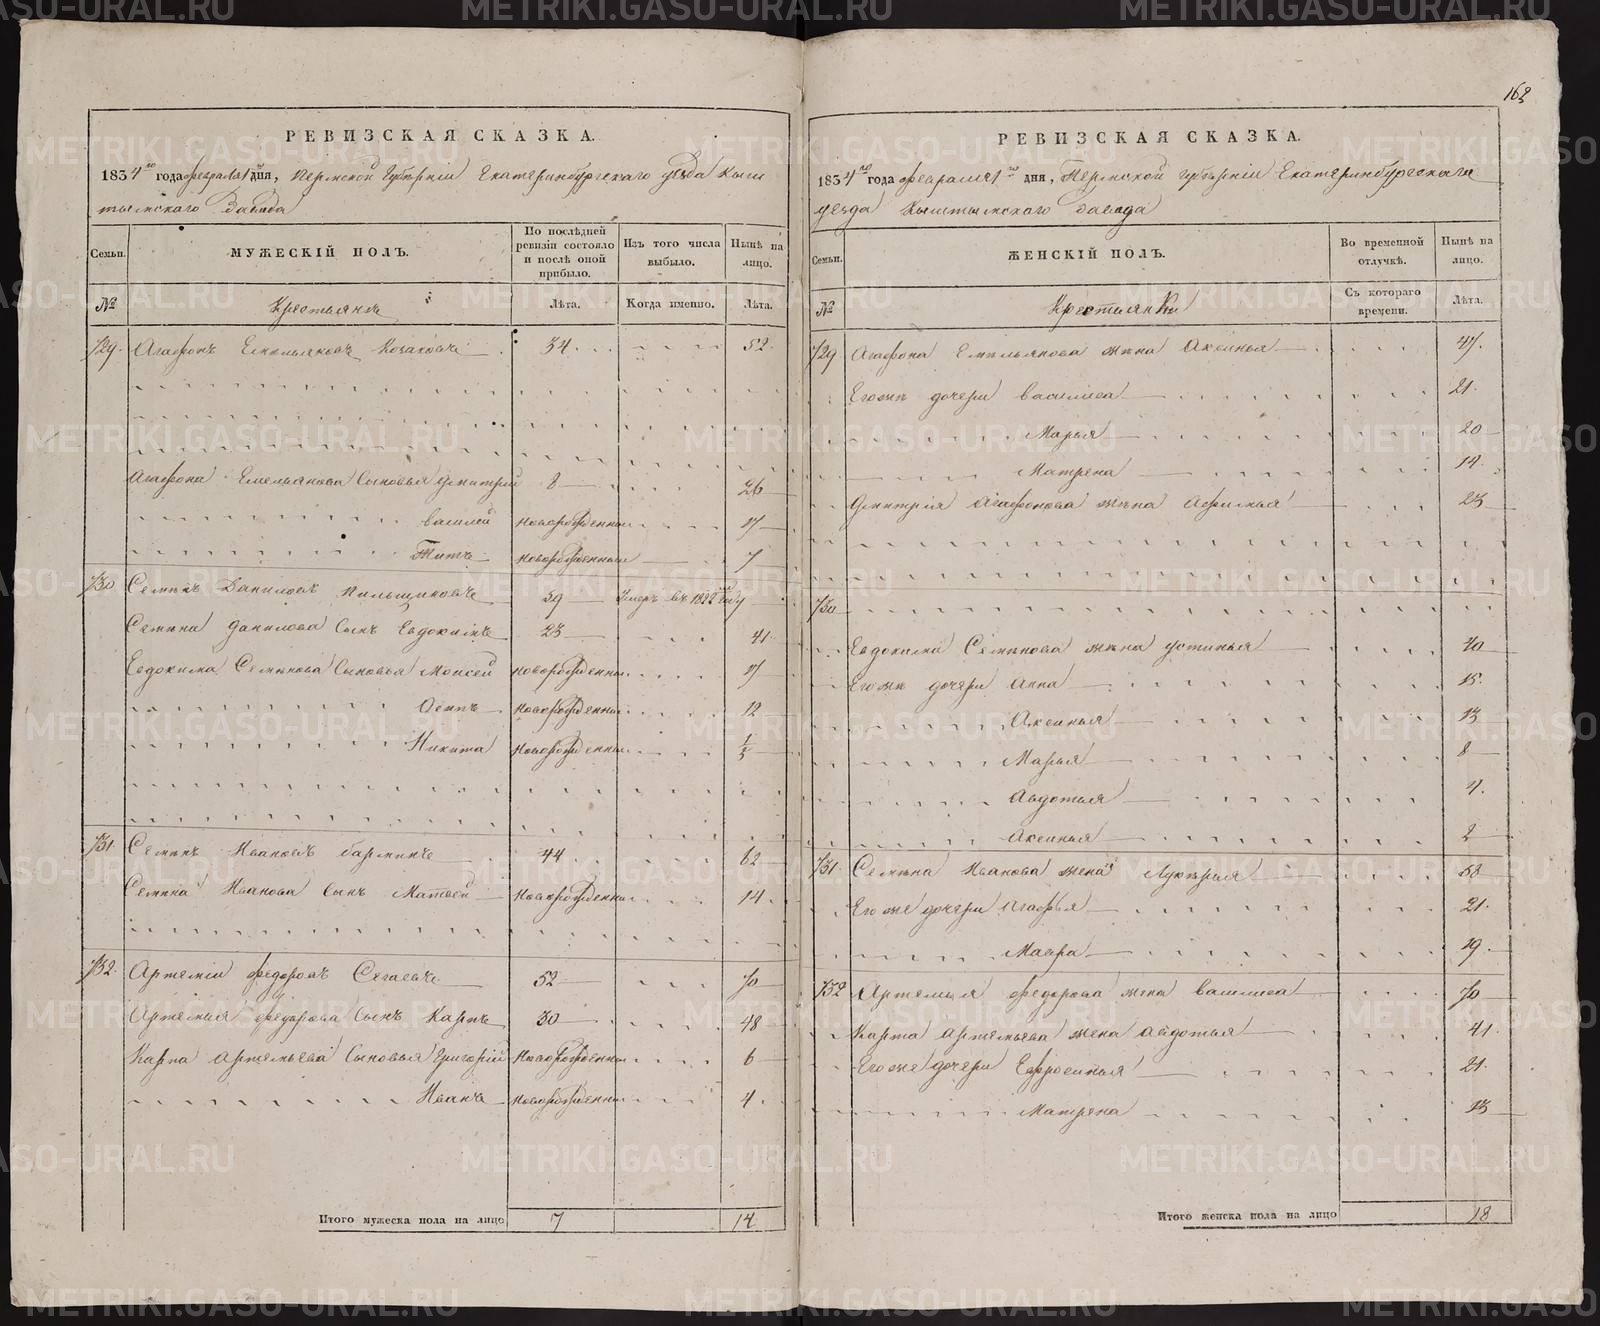 163
РЕВИЗСКАЯ СКАЗКА.
1834го года февраля 1 дня, Пермской Губернiи Екатеринбургскаго уезда Кыш
тымскаго Завода
Семьи.
МУЖЕСКIЙ ПОЛЪ.
По послѣдней ревизiи состояло и послѣ оной прибыло.
Изъ того числа выбыло.
Нынѣ на лицо.
№
Крестьянъ
Лѣта.
Когда именно.
Лѣта.
729. Агафонъ Емельяновъ Козаковъ 34 52
Агафона Емельянова Сыновья Дмитрий 8 26
Василей новорожденный 17
Титъ новорожденный 7
730 Семенъ Даниловъ Пильщиковъ 59 Умеръ въ 1822 году
Семена Данилова Сынъ Евдокимъ 23 41
Евдокима Семенова Сыновья Моисей новорожденный 17
Осипъ новорожденный 12
Никита новорожденный
731 Семенъ Ивановъ 44 62
Семена Иванова Сынъ Матвей новорожденный 14
732. Артемiй Федоровъ 52 70
Артемия Федорова Сынъ Карпъ 30 48
Карпа Артемьева Сыновья Григорий новорожденный 6
Иванъ новорожденный 4
Итого мужеска пола на лицо 7 14
РЕВИЗСКАЯ СКАЗКА.
1834го года февраля 1го дня, Пермской губернiи Екатеринбургскаго
уезда Кыштымскаго завода
Семьи.
ЖЕНСКIЙ ПОЛЪ.
Во временной отлучкѣ.
Нынѣ на лицо.
№
Крестьянки
Съ котораго времени.
Лѣта.
729 Агафона Емельянова жена Аксинья 47.
Его же дочери Василиса 21.
Марья 20
Матрена 14.
Дмитрiя Агафонова жена Афимья 23
730
Евдокима Семенова жена Устинья 40
Его же дочери Анна 15.
Аксинья 13
Марья 8
Авдотья 4.
Аксинья 2
731 Семена Иванова жена Лукерья 58
Его же дочери Агафья 21.
Мавра 19.
732 Артемья Федорова жена Василиса 70
Карпа Артемьева жена Авдотья 41.
Его же дочери Ефросинья 21.
Матрена 13
Итого женска пола на лицо 18
METRIKI.GASO-URAL.RU